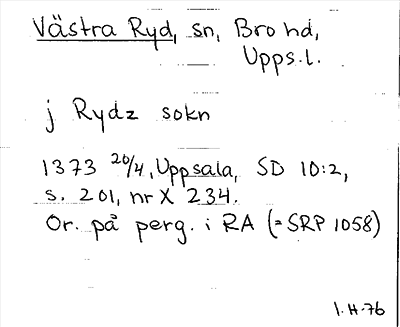 Västra Ryd, sn, Bro hd,
Upps.l.
j Rydz sokn
1373 20/4, Uppsala, SD 10:2,
s. 201, nr X 234.
Or. på perg. i RA (=SRP 1058)
1.H-76